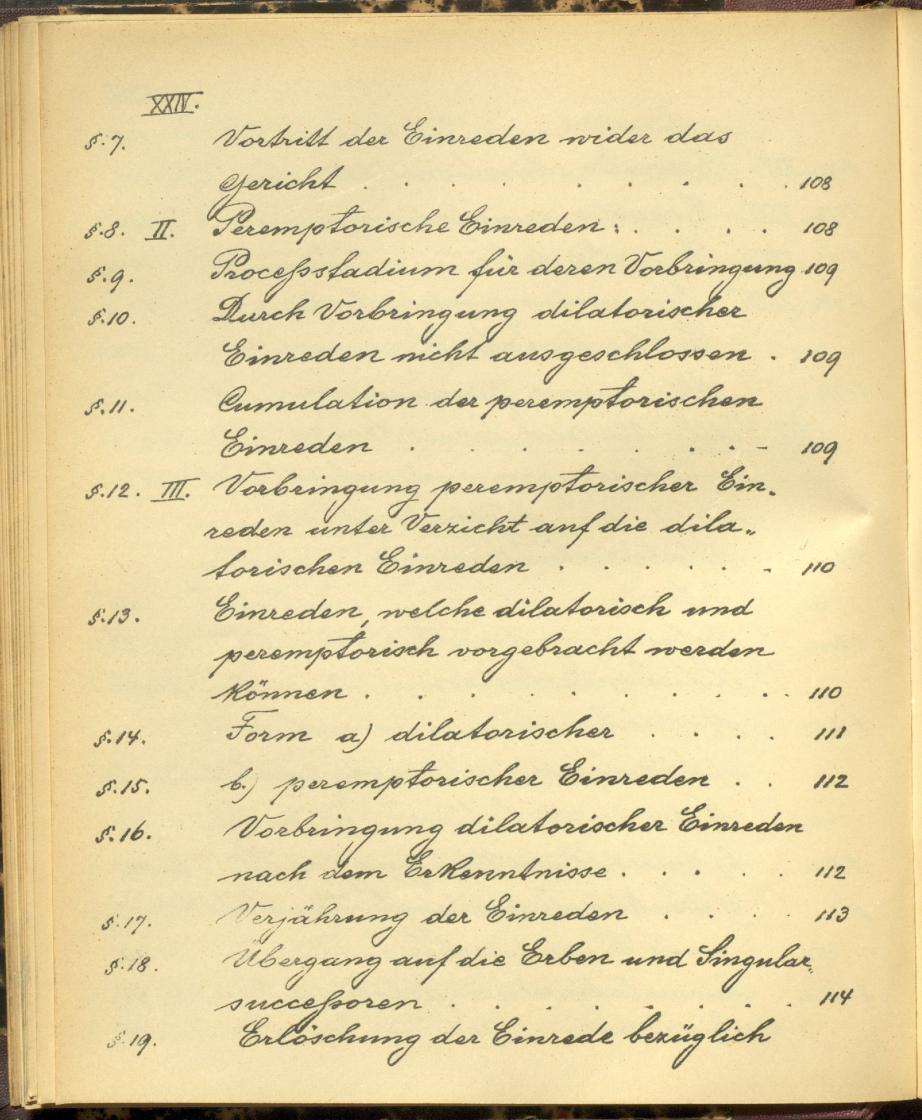 XXIV.
§.7. Vortritt der Einreden wider das
Gericht . . . . . . . . . 108
§.8. II. Peremptorische Einreden: . . . . 108
§.9. Proceßstadium für deren Vorbringung 109
§.10. Durch Vorbringung dilatorischer
Einreden nicht ausgeschlossen . 109
§.11. Cumulation der peremptorischen
Einreden . . . . . . . . . 109
§.12. III. Vorbringung peremptorischer Ein„
reden unter Verzicht auf die dila„
torischen Einreden . . . . . . 110
§.13. Einreden, welche dilatorisch und
peremptorisch vorgebracht werden
können . . . . . . . . . . 110
§.14. Form a) dilatorischer . . . . 111
§.15. b.) peremptorischer Einreden . . 112
§.16. Vorbringung dilatorischer Einreden
nach dem Erkenntnisse . . . . . 112
§.17. Verjährung der Einreden . . . . 113
§.18. Übergang auf die Erben und Singular„
succeßoren . . . . . . . . . 114
§.19. Erlöschung der Einrede bezüglich